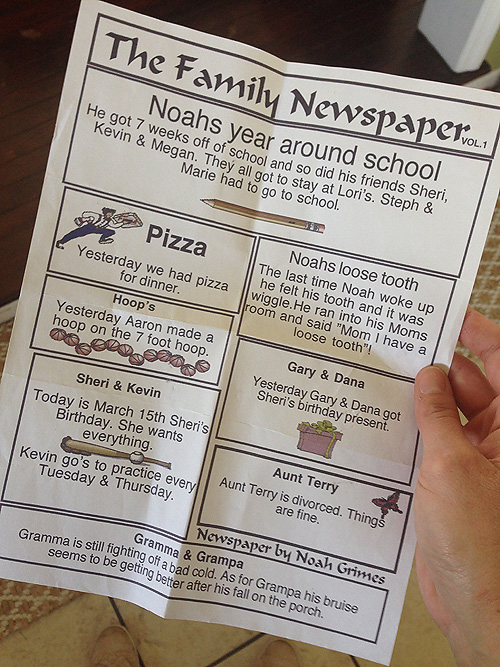 The Family Newspaper VOL.1
Noahs year around school
He got 7 weeks off of school and so did his friends Sheri,
Kevin & Megan. They all got to stay at Lori's. Steph &
Marie had to go to school.
Pizza
Yesterday we had pizza
for dinner.
Noahs loose tooth
The last time Noah woke up
he felt his tooth and it was
wiggle.He ran into his Moms
room and said "Mom I have a
loose tooth"!
Hoop's
Yesterday Aaron made a
hoop on the 7 foot hoop.
Gary & Dana
Yesterday Gary & Dana got
Sheri's birthday present.
Sheri & Kevin
Today is March 15th Sheri's
Birthday. She wants
everything.
Kevin go's to practice every
Tuesday & Thursday.
Aunt Terry
Aunt Terry is divorced. Things
are fine.
Newspaper by Noah Grimes
Gramma & Grampa
Gramma is still fighting off a bad cold. As for Grampa his bruise
seems to be getting better after his fall on the porch.